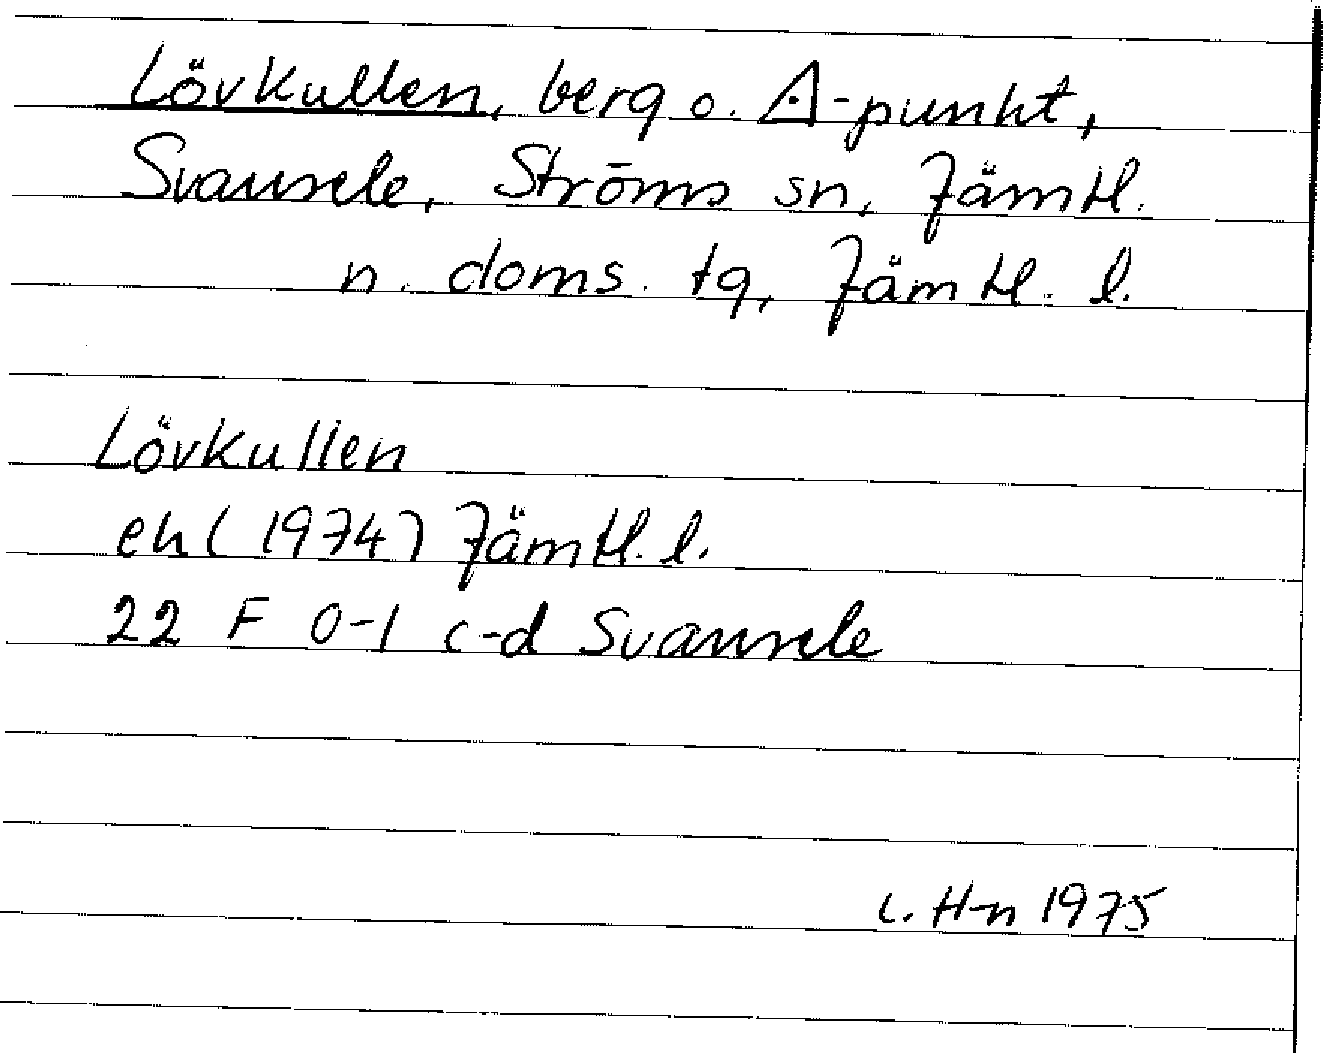 Lövkullen, berg o. ◬-punkt,
Svansele, Ströms sn, Jämtl.
n. doms. tg, Jämtl. l.
Lövkullen
ek (1974) Jämtl. l.
22 F 0-1 c-d Svansele
C. H-n 1975